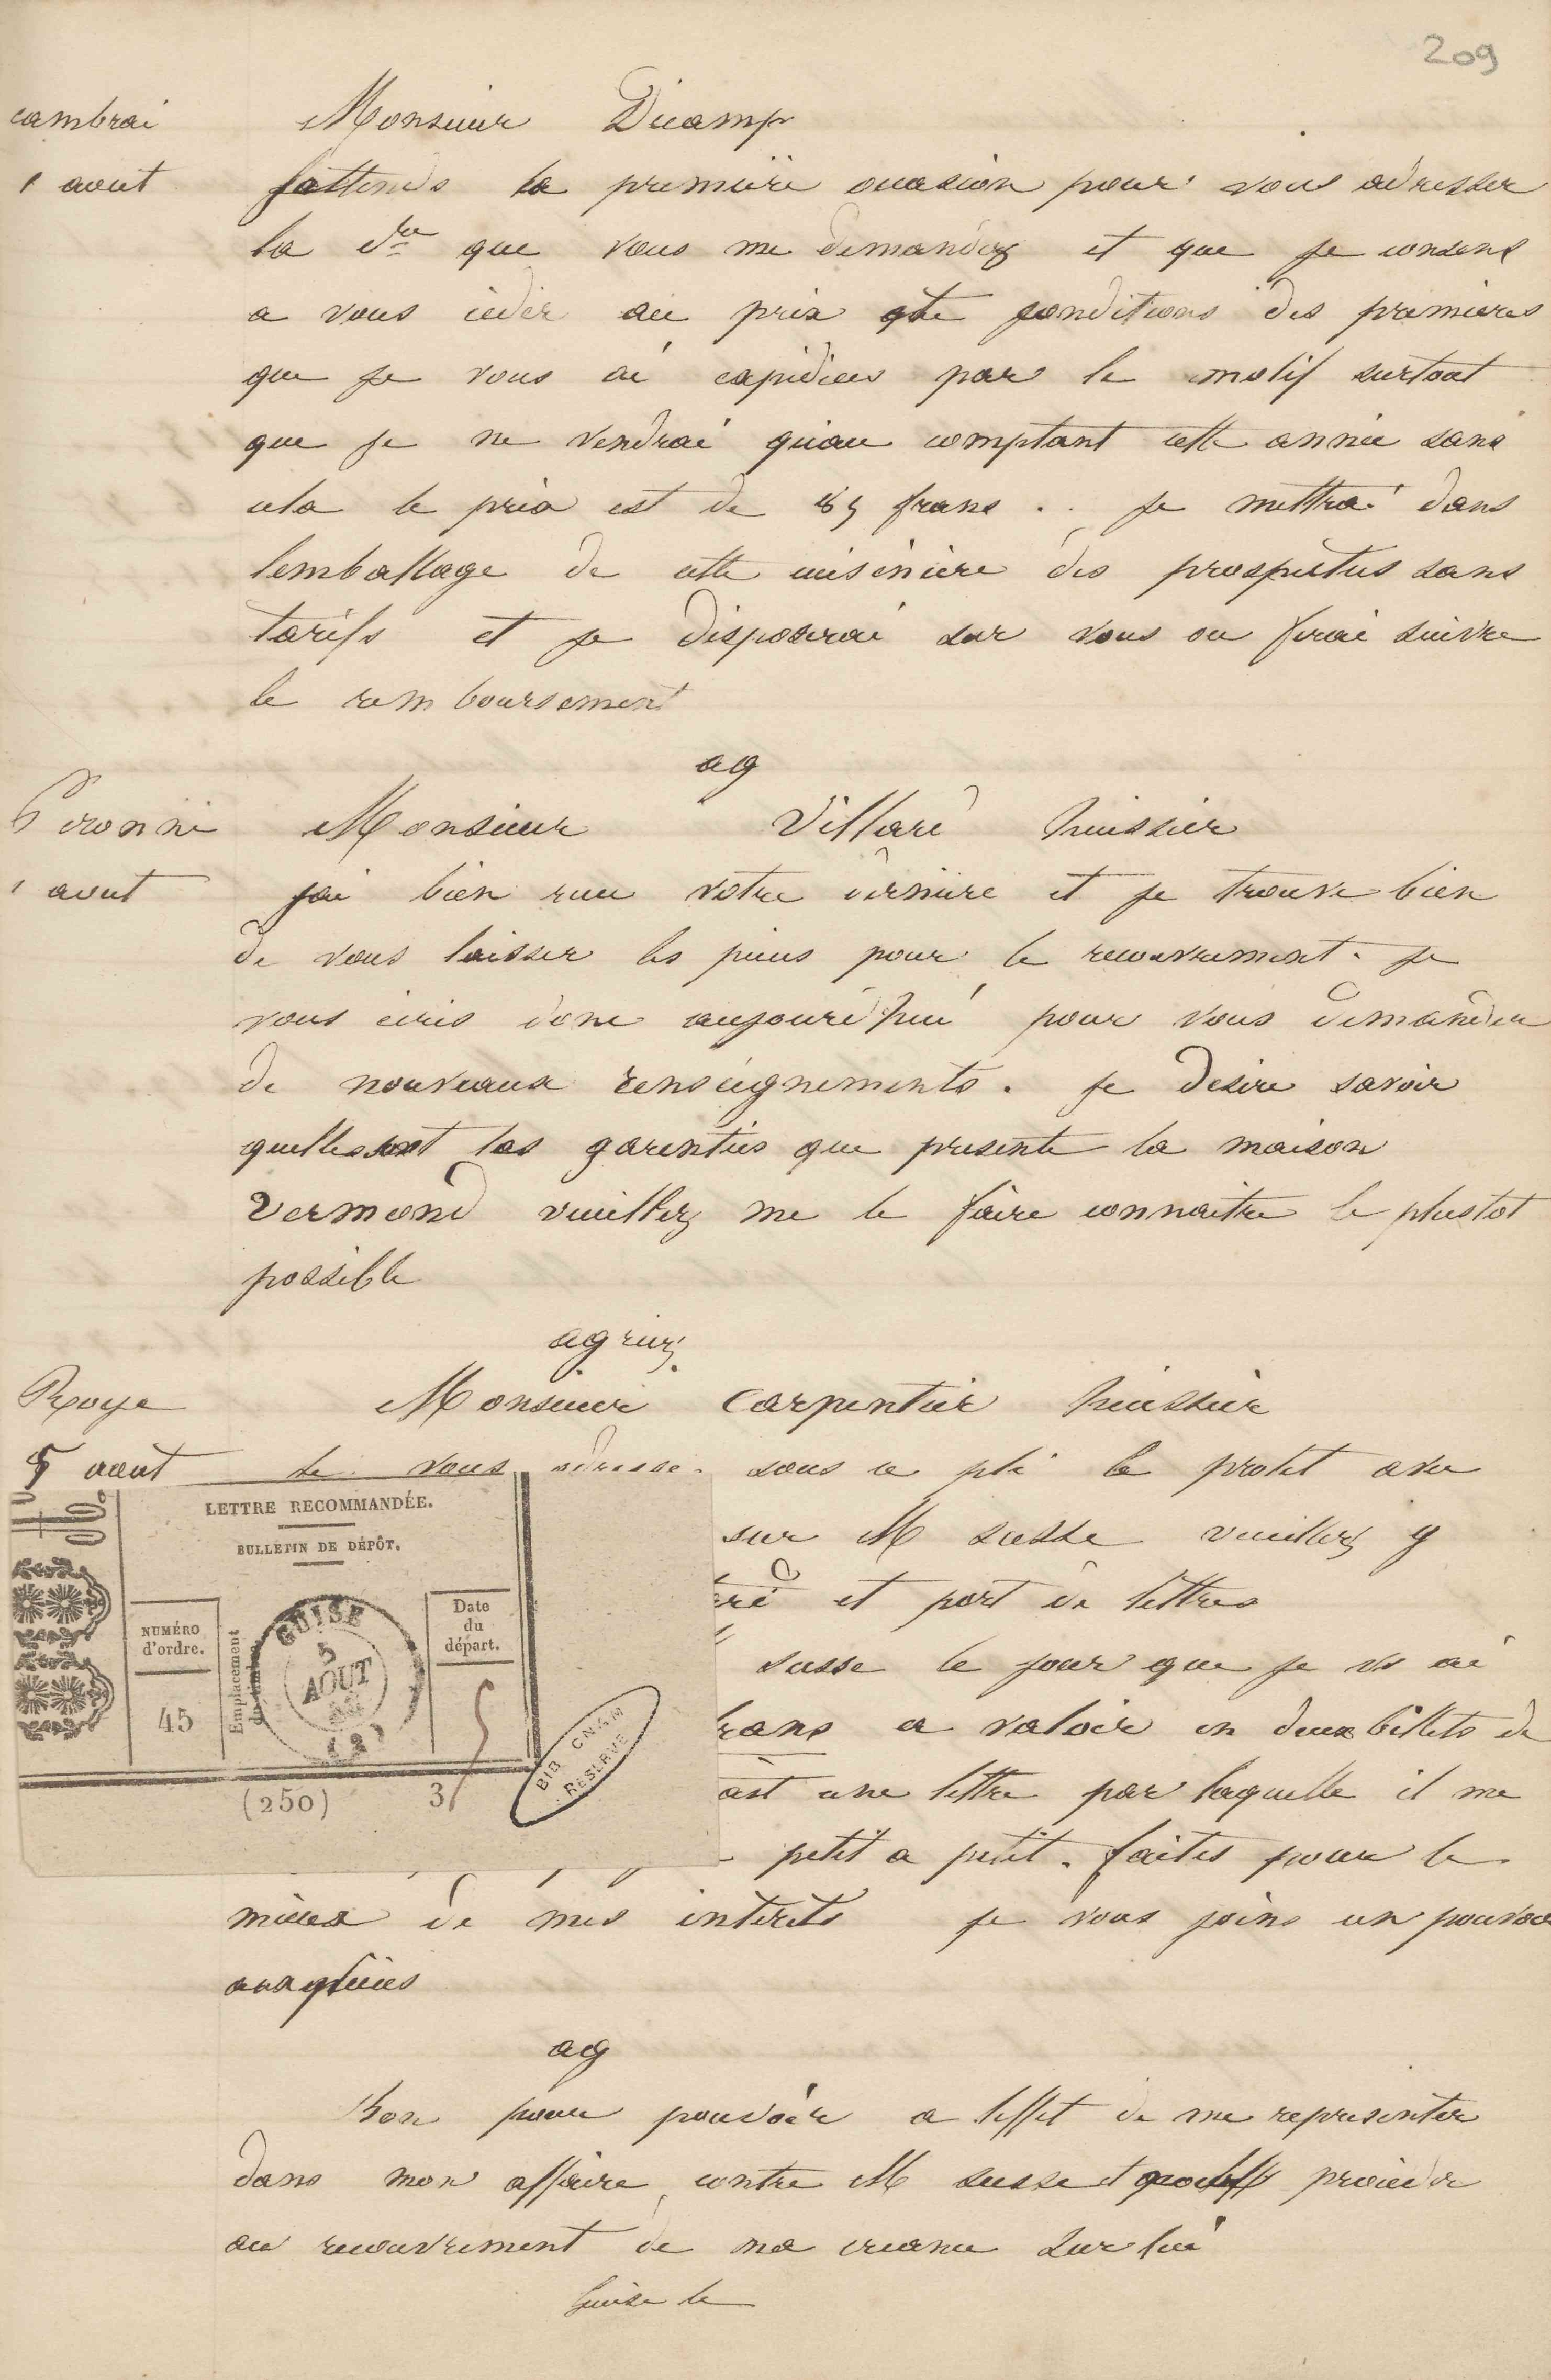 209
cambrai Monsieur Dicamp
1 aout jattends la première occasion pour vous adresser
la dre que vous me demandez et que je consens
a vous ceder au prix et conditions des premieres
que je vous ai expediees par le motif surtout
que je ne vendrai qu'au comptant cette année sans
cela le prix est de 85 frans . . je mettrai dans
lemballage de cette cuisiniere des prospectus sans
tarifs et je disposerai sur vous ou ferai suivre
le remboursement
ag
Peronne Monsieur Villaré huissier
1 aout jai bien recu votre derniere et je trouve bien
de vous laisser les pieces pour le recouvrement. je
vous ecris donc aujourd'hui pour vous demander
de nouveaux renseignements. je desire savoir
quelles sont les garenties que presente la maison
Vermond veuillez me le faire connaitre le plustot
possible
agriez
Roye Monsieur Carpentier huissier
5 aout Je vous adresse sous ce pli le protet avec
LETTRE RECOMMANDÉE.
BULLETIN DE DÉPÔT.
NUMÉRO
d'ordre.
45
Emplacement
du timbre
GUISE
5
AOUT
(2)
Date
du
départ.
5
(250) 3
BIB CNAM
RESERVE
sur M susse veuillez y
et port de lettres
susse le jour que je vs ai
rans a valoir en deux billets de
une lettre par laquelle il me
petit a petit. faites pour le
mieux de mes interets je vous joins un pouvoir
aux pieces
ag
Bon pour pouvoir a leffet de me representer
dans mon affaire contre M susse et proceder
au recouvrement de ma creance sur lui
Guise le